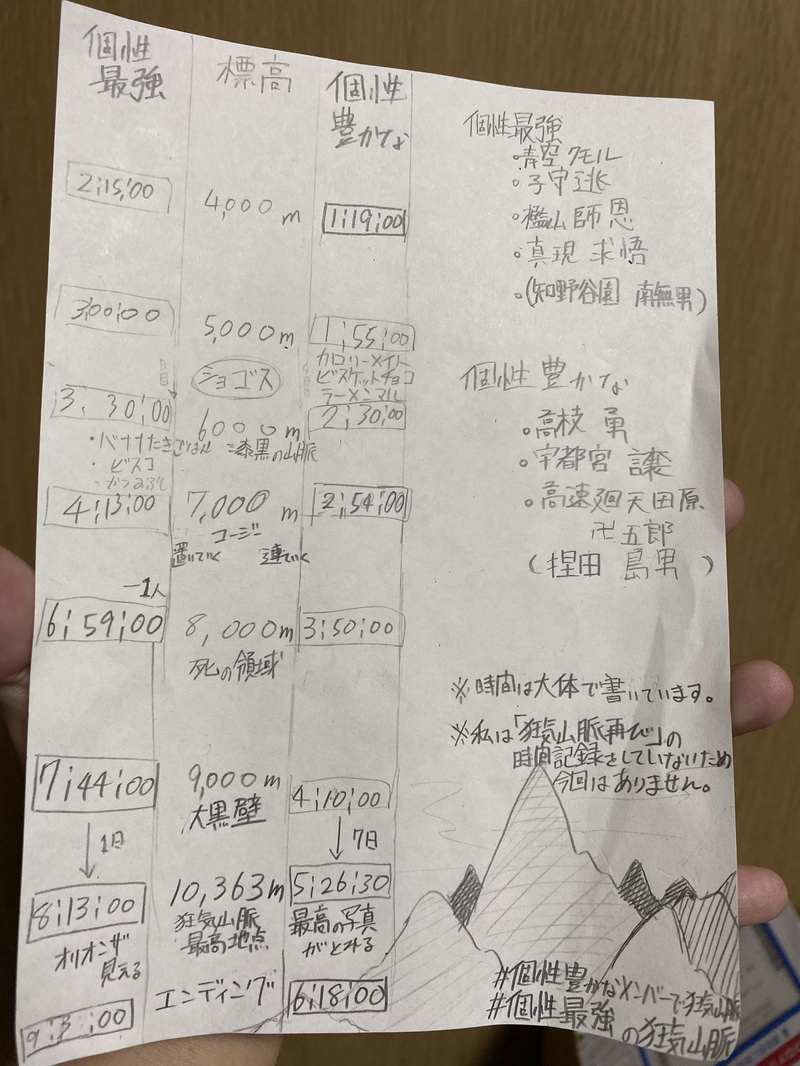 個性最強
標高
個性豊かな
2:15:00
4,000m
1:19:00
3:00:00
5,000m
1:55:00
ショゴス
カロリーメイト
ビスケットチョコ
ラーメンマル
3:30:00
6000m
2:30:00
・バナナたきごはん
漆黒の山脈
・ビスコ
・かつおぶし
4:13:00
7,000m
2:54:00
コージー
置いていく
連れていく
-1人
6:59:00
8,000m
3:50:00
死の領域
7:44:00
9,000m
4:10:00
大黒壁
↓1日
↓7日
8:13:00
10,363m
5:26:30
オリオンザ見える
狂気山脈
最高地点
最高の写真
がとれる
エンディング
6:18:00
個性最強
・青空 クモル
・子守 逃
・檻山 師恩
・真現 求悟
・(知野谷園 南無男)
個性豊かな
・高枝 勇
・宇都宮 譲
・高速廻天田原
卍五郎
(捏田 島男)
※時間は大体で書いています。
※私は「狂気山脈再び」の
時間記録をしていないため
今回はありません。
#個性豊かなメンバーで狂気山脈
#個性最強の狂気山脈